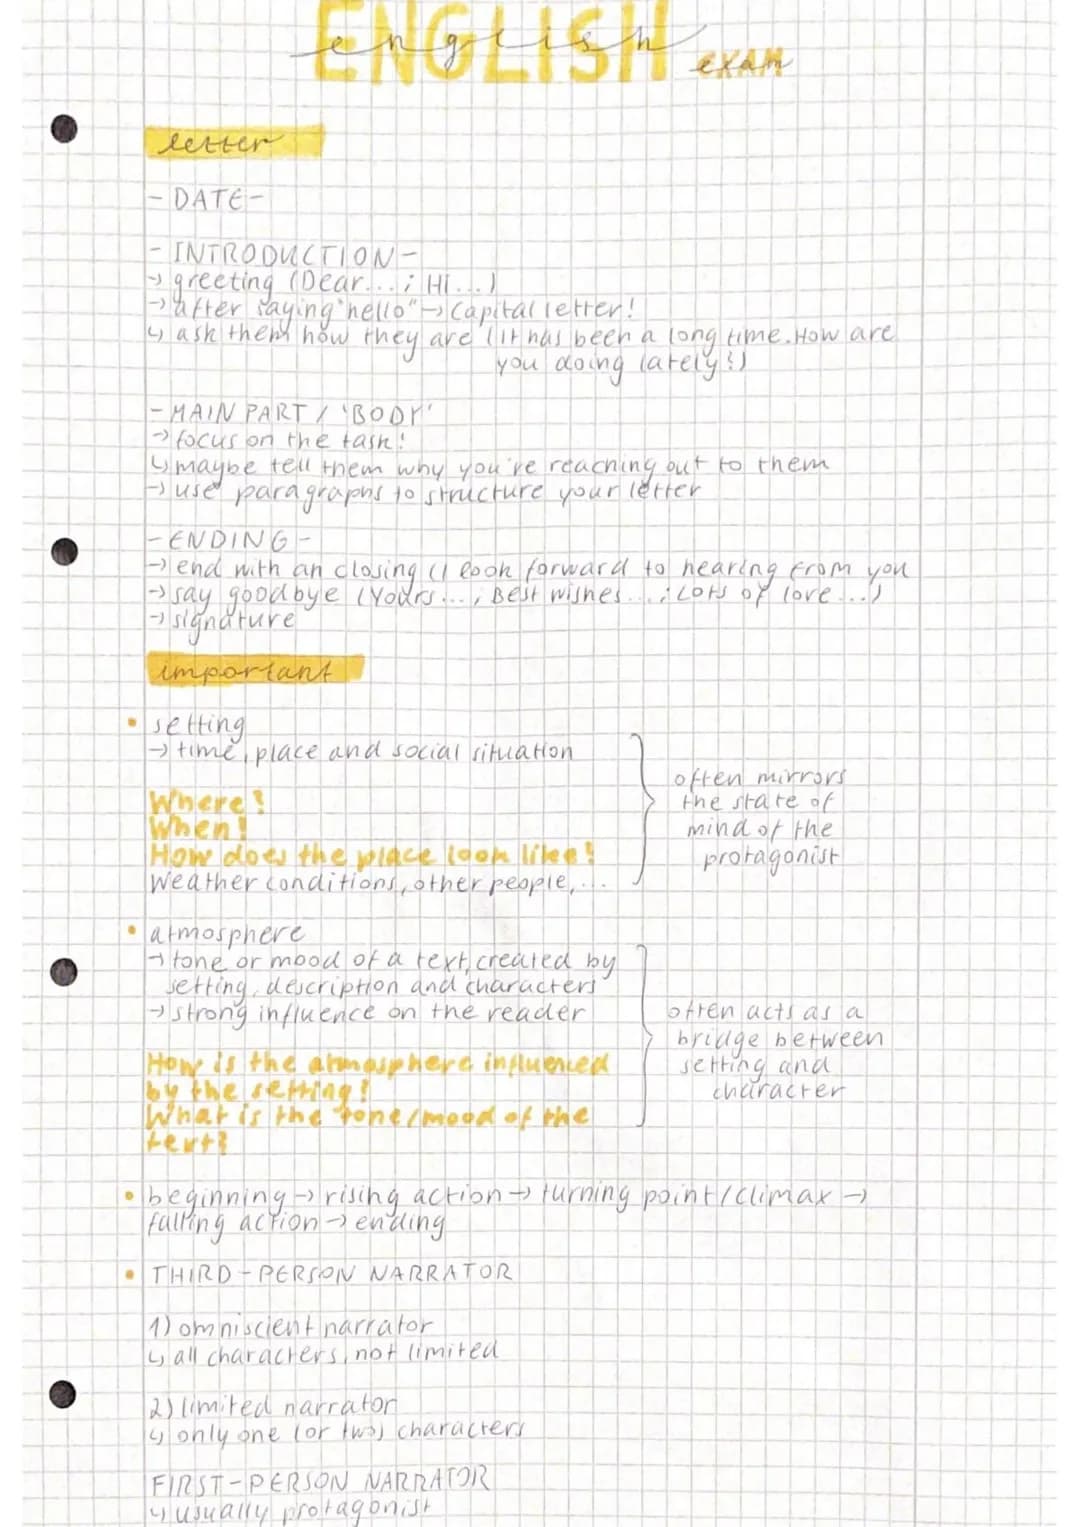 ENGLISH
english exam
letter
- DATE -
- INTRODUCTION -
→ greeting (Dear...; Hi...)
→ after saying "hello" → Capital letter!
↳ ask them how they are (it has been a long time. How are
you doing lately?)
- MAIN PART / 'BODY'
→ focus on the task!
↳ maybe tell them why you're reaching out to them
→ use paragraphs to structure your letter
- ENDING -
→ end with an closing (I look forward to hearing from you
→ say goodbye (Yours...; Best wishes...; Lots of love...)
→ signature
important
• setting
→ time, place and social situation
often mirrors
the state of
mind of the
protagonist
Where?
When?
How does the place look like?
Weather conditions, other people,...
• atmosphere
→ tone or mood of a text, created by
setting, description and characters
→ strong influence on the reader
often acts as a
bridge between
setting and
character
How is the atmosphere influenced
by the setting?
What is the tone/mood of the
text?
• beginning → rising action → turning point/climax →
falling action → ending
• THIRD-PERSON NARRATOR
1) omniscient narrator
↳ all characters, not limited
2) limited narrator
↳ only one (or two) characters
FIRST-PERSON NARRATOR
↳ usually protagonist